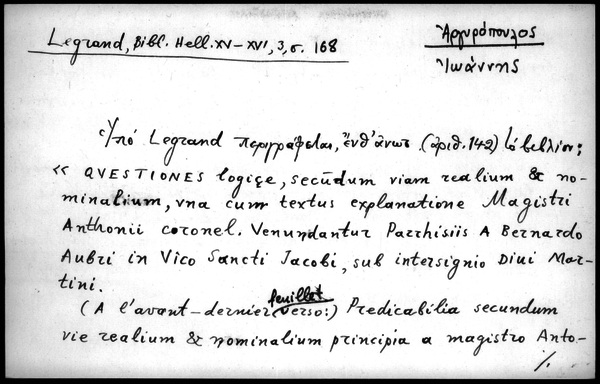 Legrand, Bibl. Hell. XV–XVI, 3, σ. 168
Ἀργυρόπουλος
Ἰωάννης
Ὑπό Legrand περιγράφεται, ἔνθ' ἄνωτ. (ἀριθ. 142) τό βιβλίον:
« QVESTIONES logicę, secūdum viam realium & no-
minalium, vna cum textus explanatione Magistri
Anthonii coronel. Venundantur Parrhisiis A Bernardo
Aubri in Vico Sancti Jacobi, sub intersignio Diui Mar-
tini.
(A l'avant-dernier feuillet verso:) Predicabilia secundum
vie realium & nominalium principia a magistro Anto-
./.